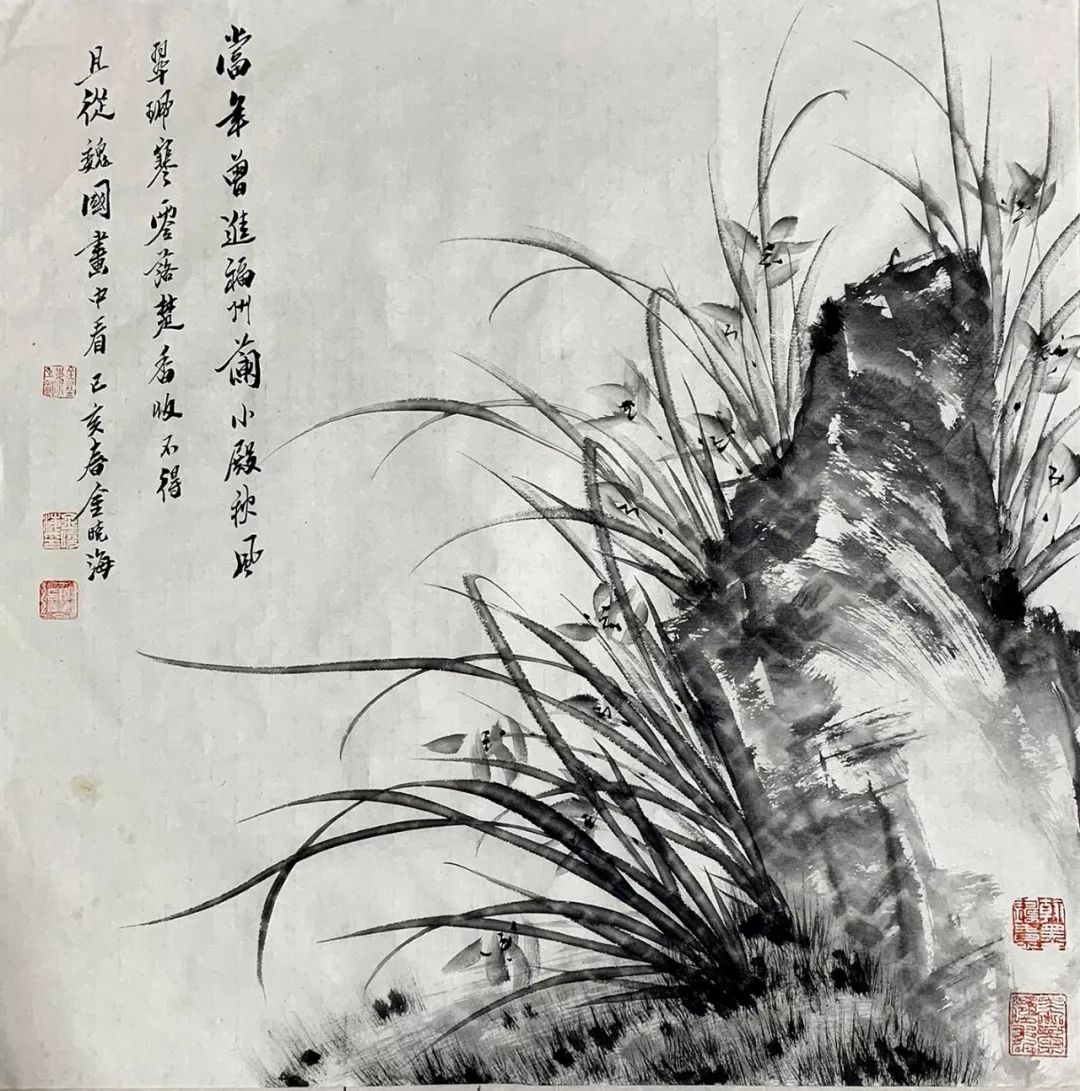 當年曾進福州蘭小殿秋風
翠珮寒零落楚香收不得
且從魏國畫中看己亥春金曉海